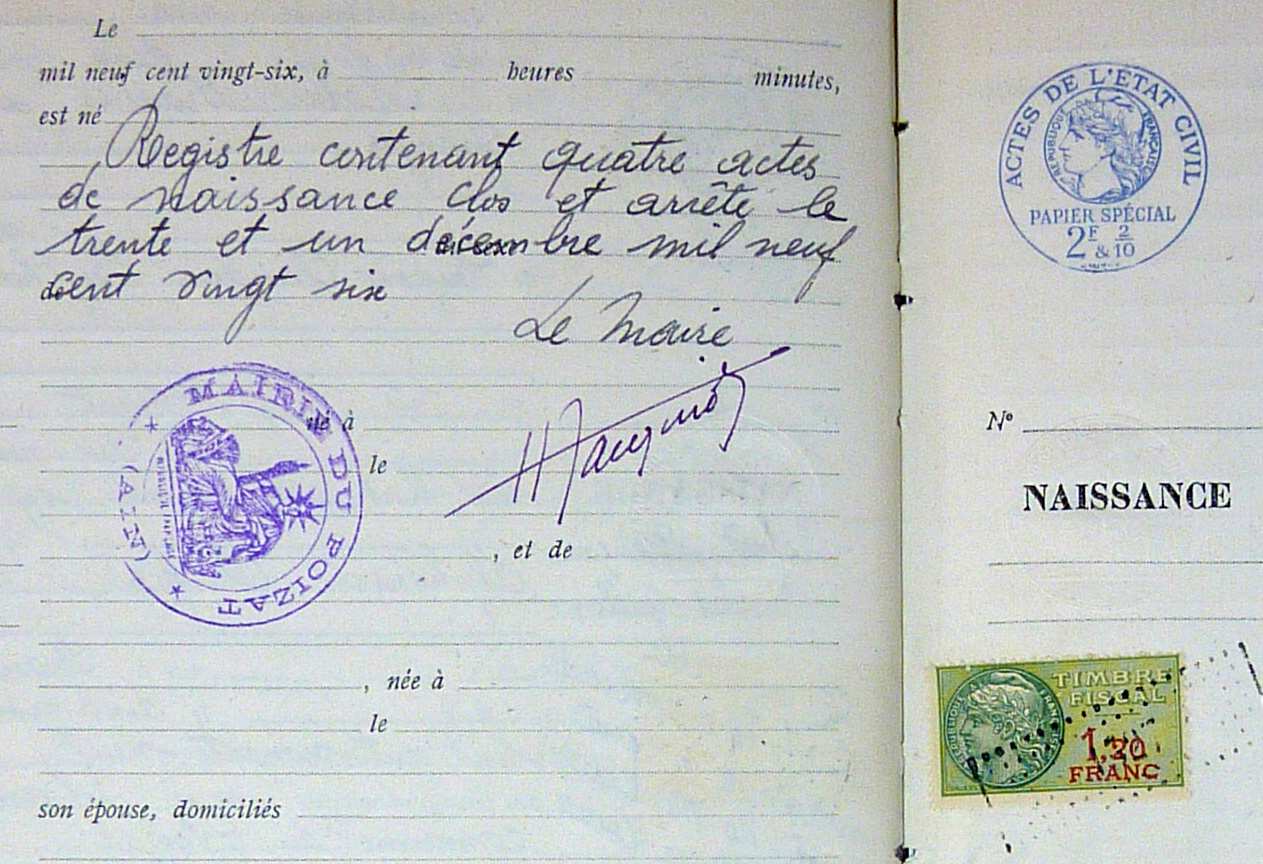 Le
mil neuf cent vingt-six, à heures minutes,
est né
Registre contenant quatre actes
de naissance clos et arrêté le
trente et un décembre mil neuf
cent vingt six
Le Maire
né à
le
, et de
, née à
le
son épouse, domiciliés
MAIRIE DU POIZAT
(AIN)
ACTES DE L'ETAT CIVIL
RÉPUBLIQUE FRANÇAISE
PAPIER SPÉCIAL
2F & 2/10
No
NAISSANCE
TIMBRE
FISCAL
1,20
FRANC